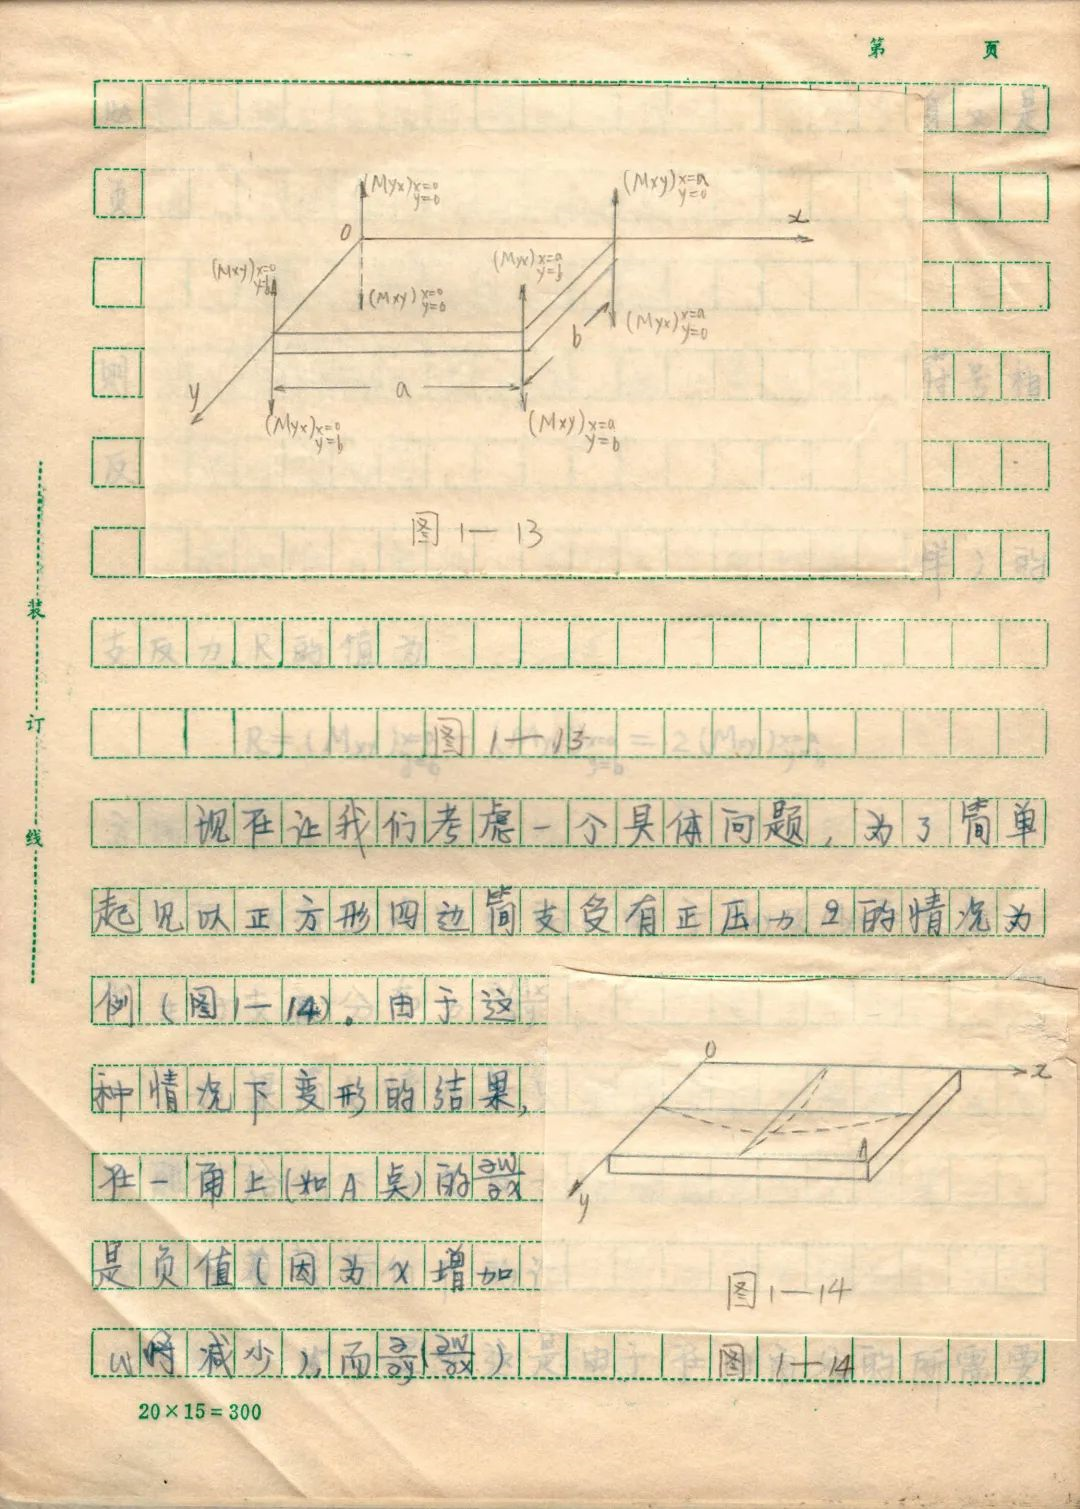 第 页
(Myx)x=0 y=0
(Mxy)x=a y=0
0
x
(Mxy)x=0 y=b
(Myx)x=a y=b
(Mxy)x=0 y=0
(Myx)x=a y=0
b
y
a
(Myx)x=0 y=b
(Mxy)x=a y=b
图1—13
支反力R的值为
图1—13
现在让我们考虑一个具体问题,为了简单
起见以正方形四边简支受有正压力q的情况为
例(图1—14)。由于这
种情况下变形的结果,
在一角上(如A点)的∂W/∂x
是负值(因为x增加
W将减少),而∂/∂y(∂W/∂x)
0
x
A
y
图1—14
图1—14
装
订
线
20×15=300